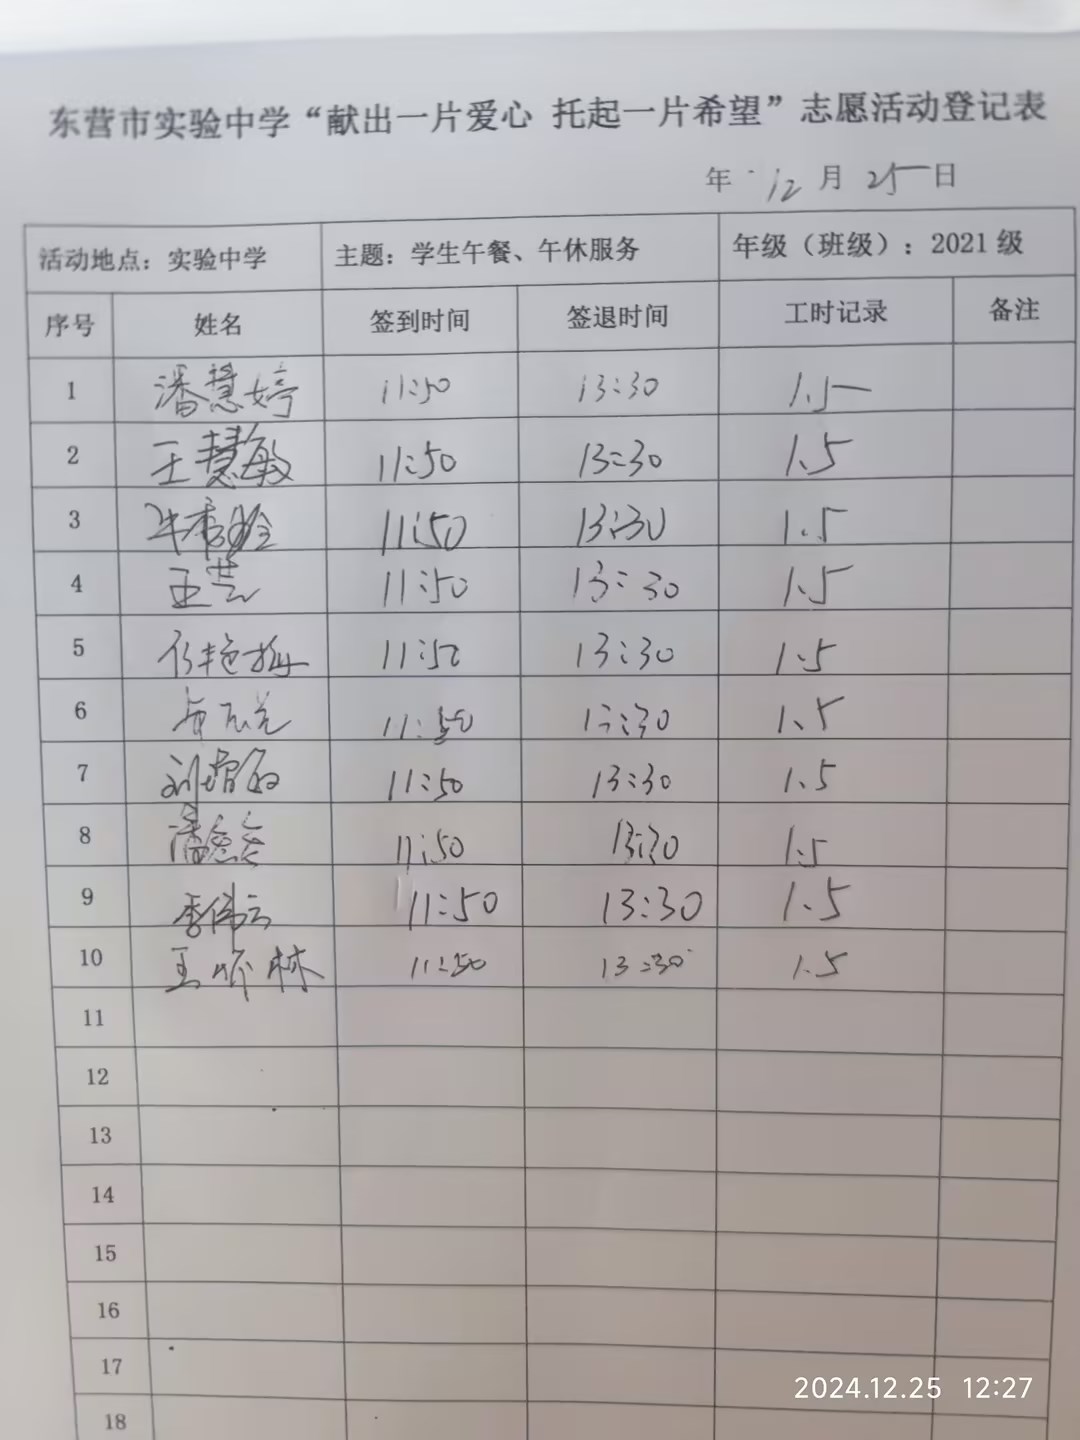 东营市实验中学“献出一片爱心 托起一片希望”志愿活动登记表
年 12 月 25 日
活动地点：实验中学 主题：学生午餐、午休服务 年级（班级）：2021 级
序号 姓名 签到时间 签退时间 工时记录 备注
1 潘慧婷 11:50 13:30 1.5
2 王慧敏 11:50 13:30 1.5
3 11:50 13:30 1.5
4 11:50 13:30 1.5
5 11:50 13:30 1.5
6 11:50 13:30 1.5
7 刘增 11:50 13:30 1.5
8 潘 11:50 13:30 1.5
9 李伟云 11:50 13:30 1.5
10 王 林 11:50 13:30 1.5
11
12
13
14
15
16
17
18
2024.12.25 12:27